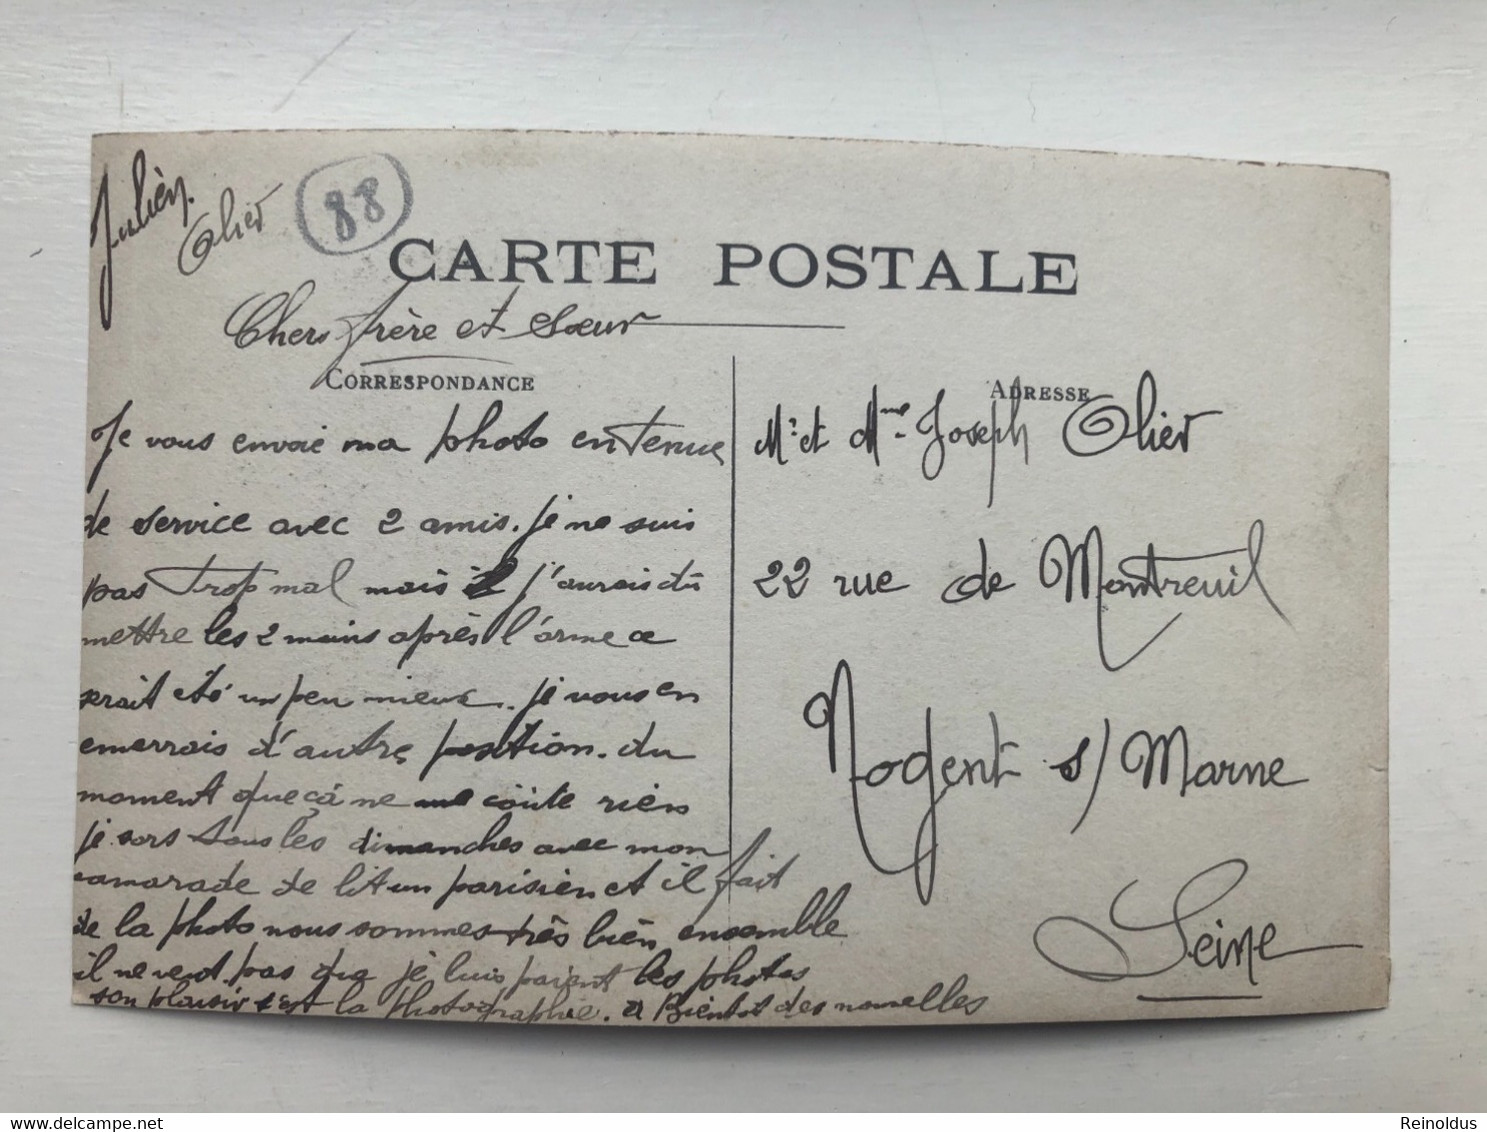 Julièn.
Olier
88
CARTE POSTALE
Chers frère et Sœur
CORRESPONDANCE
Je vous envoie ma photo en tenue
de service avec 2 amis. je ne suis
pas trop mal mais j'aurais dû
mettre les 2 mains après l'arme ce
serait été un peu mieux. je vous en
enverrais d'autre position. du
moment que çà ne me coûte rien
je sors tous les dimanches avec mon
camarade de lit un parisien et il fait
de la photo nous sommes très bien ensemble
il ne veut pas que je lui paient les photos
son plaisir s'est la photographie. a Bientot des nouvelles
ADRESSE
Mr et Mme Joseph Olier
22 rue de Montreuil
Nogent s/ Marne
Seine
Reinoldus